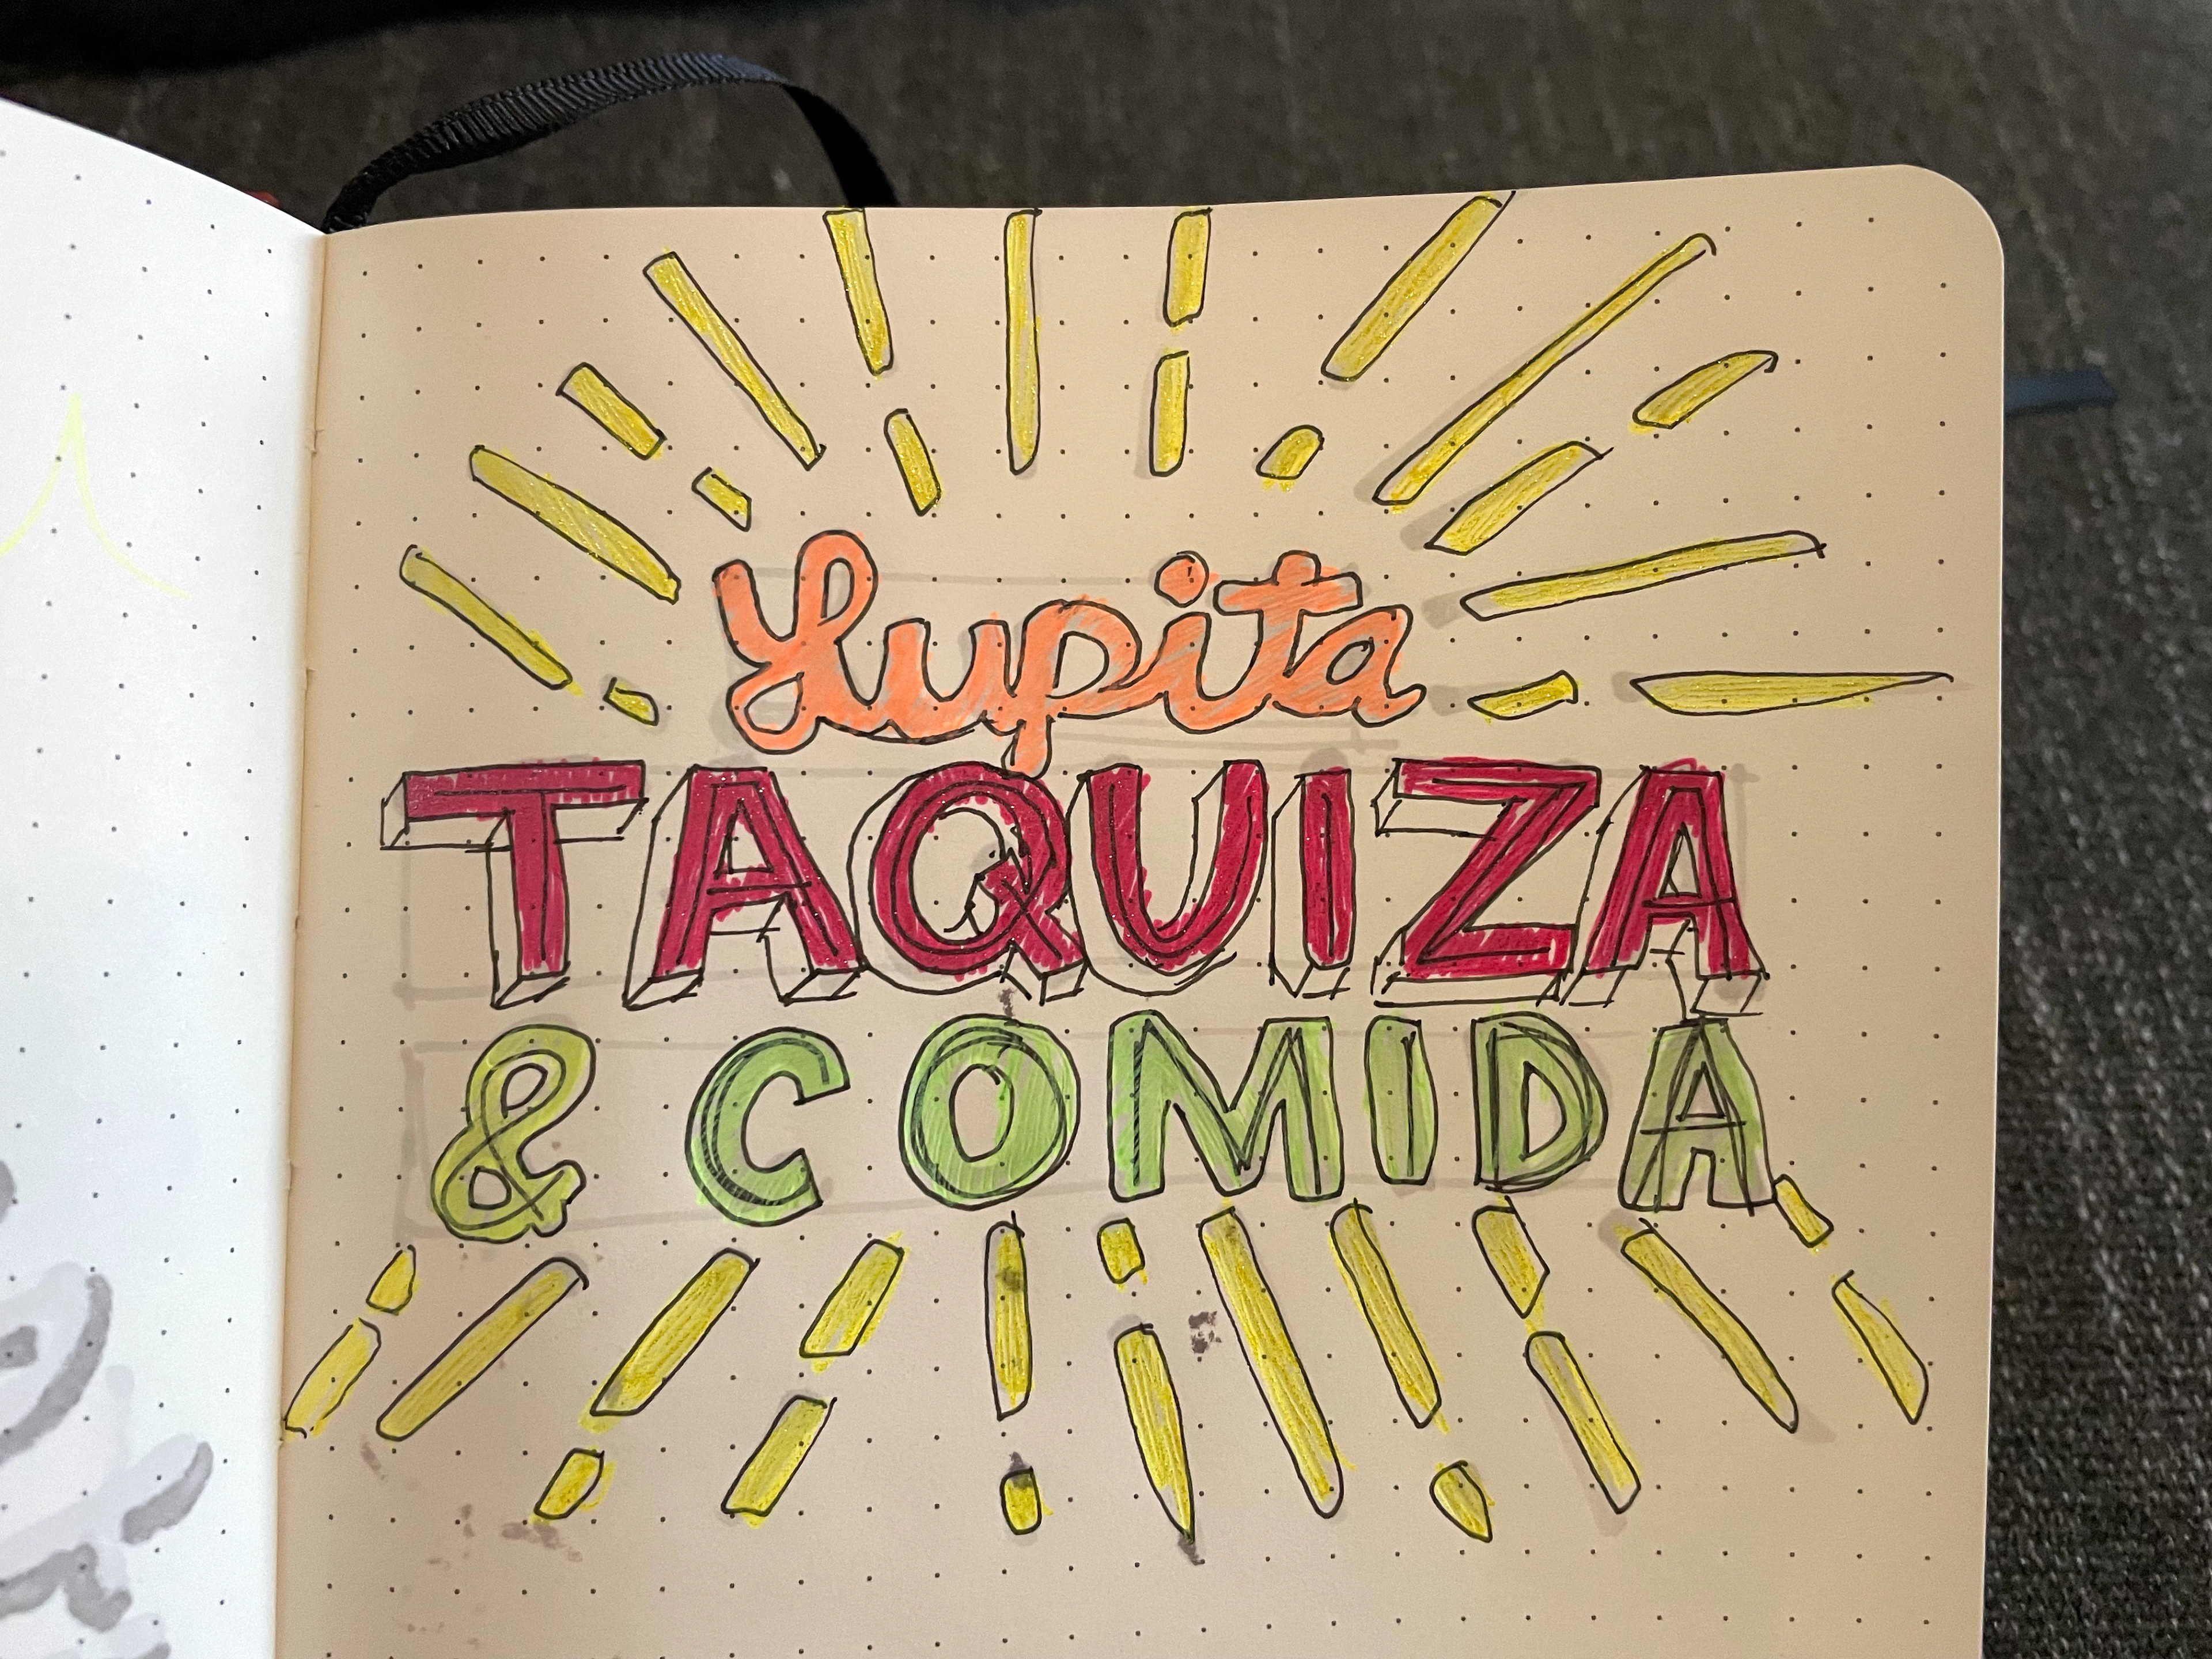 Lupita
TAQUIZA
& COMIDA